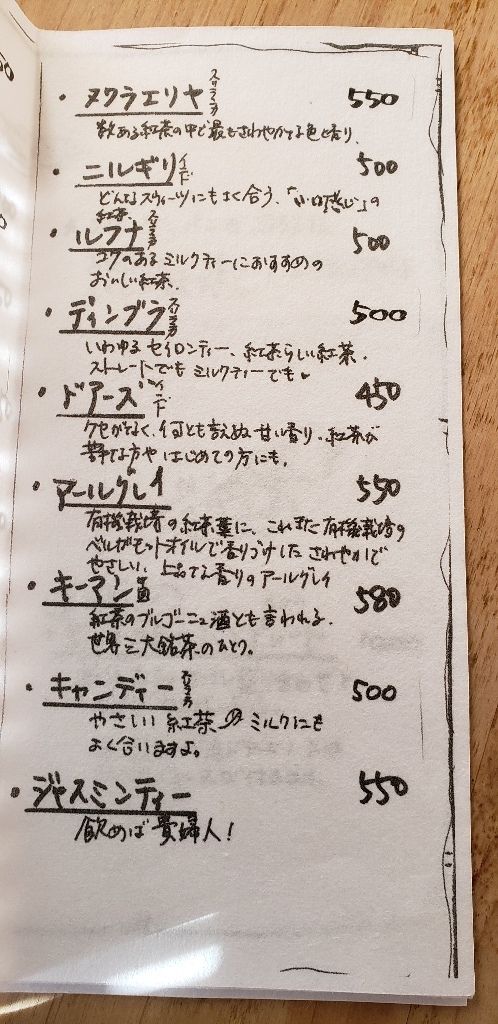 ・ヌワラエリヤ スリランカ 550
数ある紅茶の中で最もさわやかな色と香り、
・ニルギリ インド 500
どんなスウィーツにもよく合う、「いい感じ」の
紅茶、
・ルフナ スリランカ 500
コクのあるミルクティーにおすすめの
おいしい紅茶、
・ディンブラ スリランカ 500
いわゆるセイロンティー、紅茶らしい紅茶、
ストレートでもミルクティーでも♥
・ドアーズ インド 450
クセがなく、何とも言えぬ甘い香り、紅茶が
苦手な方や はじめての方にも。
・アールグレイ 550
有機栽培の紅茶葉に、これまた有機栽培の
ベルガモットオイルで香りづけした さわやかで
やさしい、上品な香りのアールグレイ
・キーマン 中国 580
紅茶のブルゴーニュ酒とも言われる、
世界三大銘茶のひとつ。
・キャンディー スリランカ 500
やさしい紅茶 ミルクにも
よく合いますよ。
・ジャスミンティー 550
飲めば貴婦人！